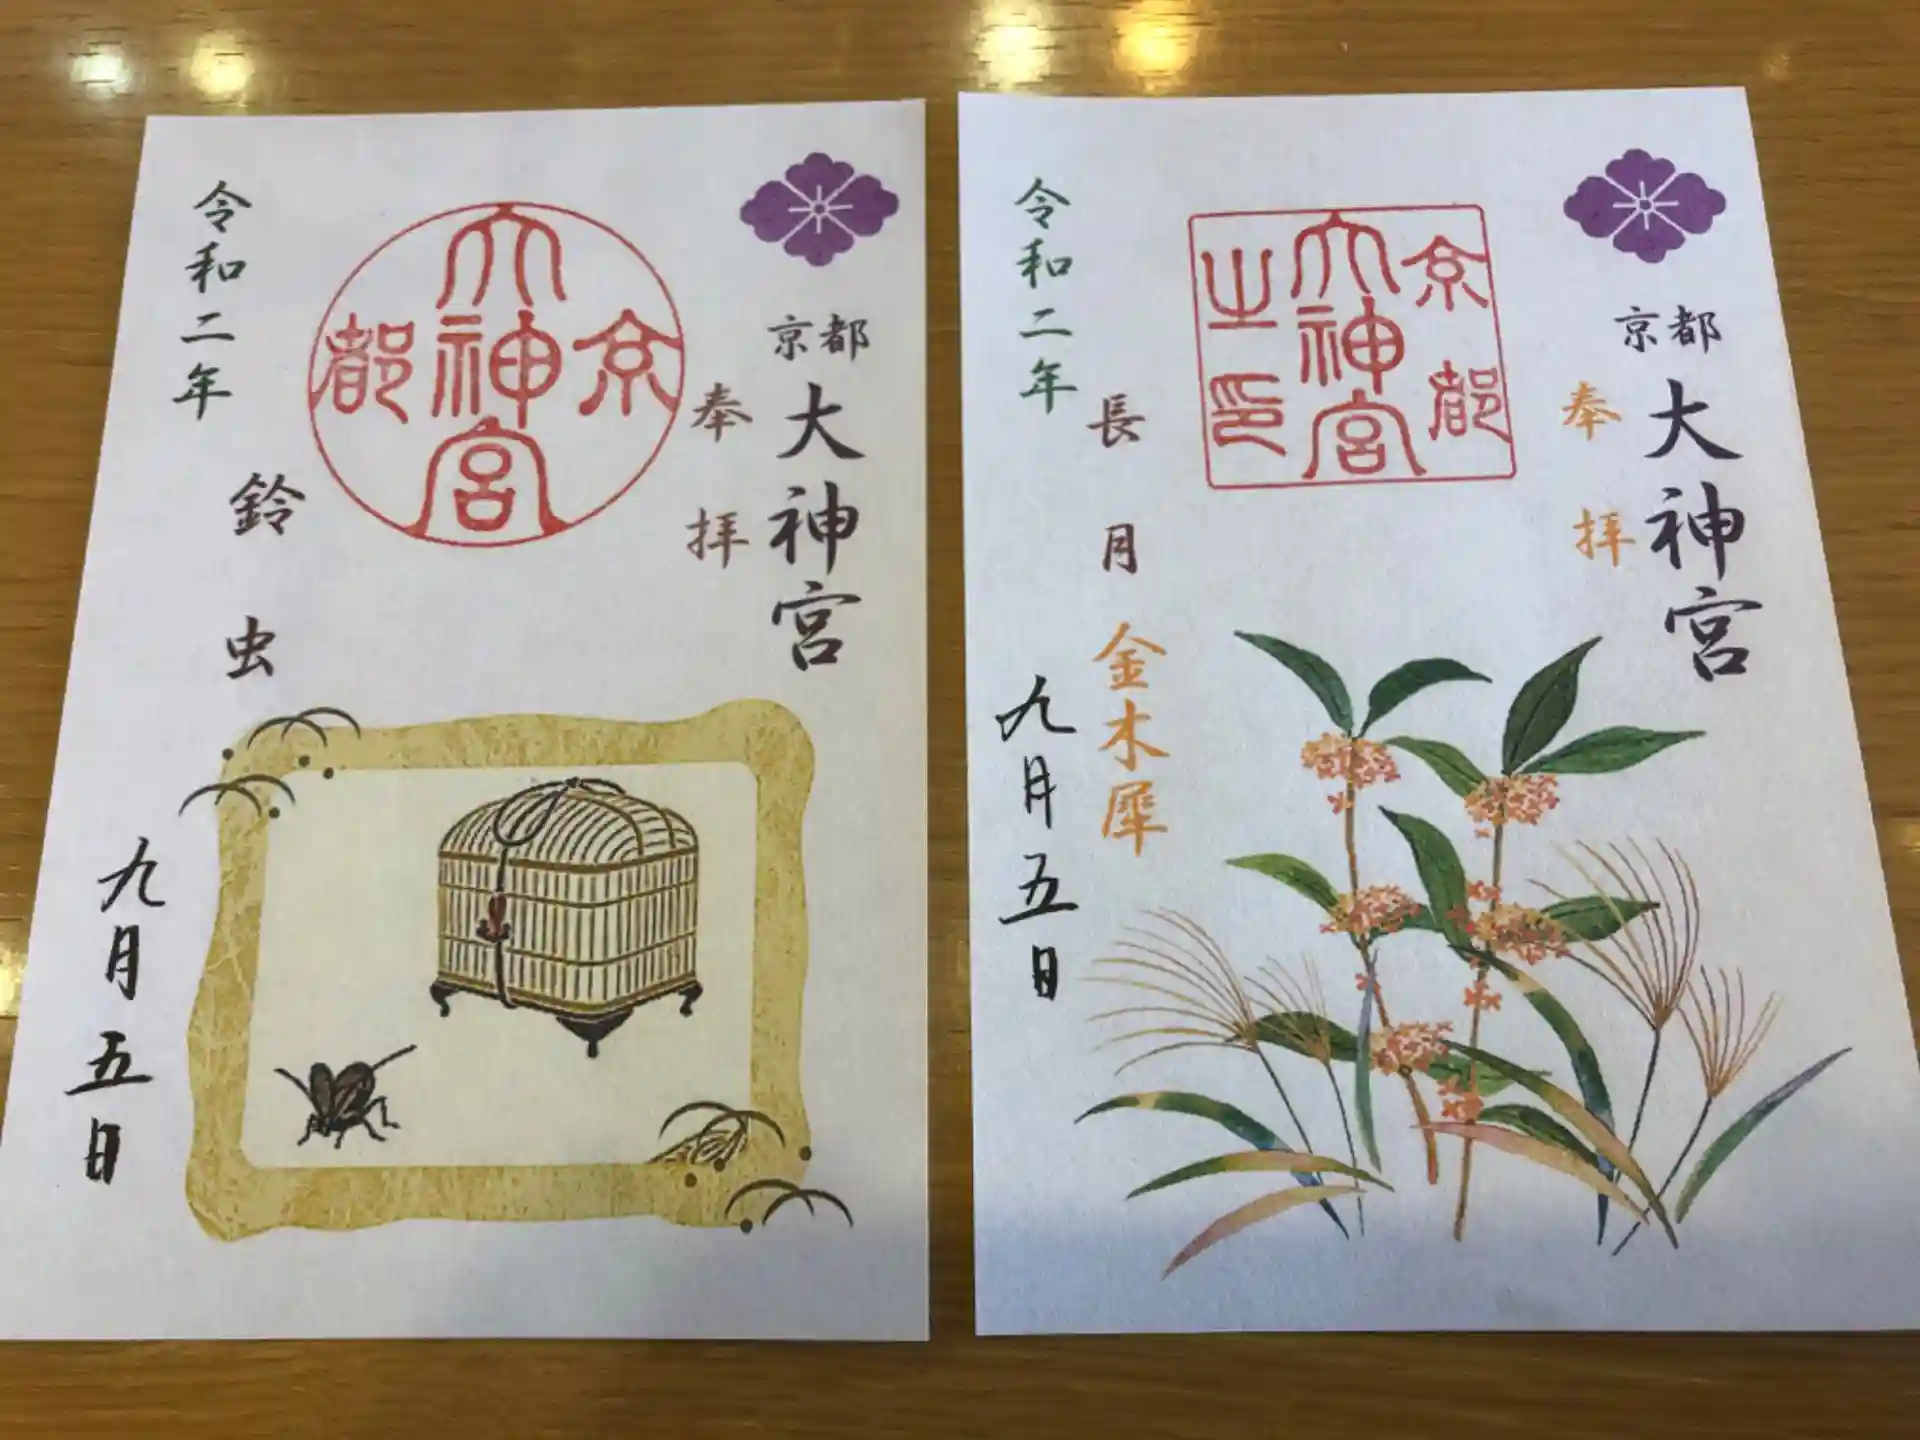 京都
大神宮
奉拝
京都大神宮
令和二年
鈴虫
九月五日
京都
大神宮
奉拝
京都大神宮之印
令和二年
長月
金木犀
九月五日